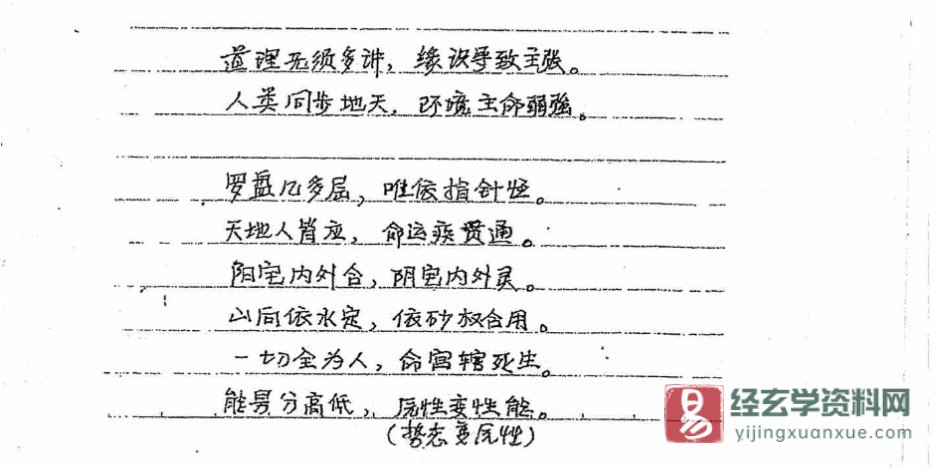 道理无须多讲，缘识导致主张。
人类同步地天，环境主命弱强。
罗盘几多层，唯依指针恒。
天地人皆应，命运疾贯通。
阳宅内外合，阴宅内外灵。
山向依水定，依砂权合用。
一切全为人，命宫辖死生。
能易分高低，质性变性能。
(势态变质性)
易
经玄学资料网
yijingxuanxue.com